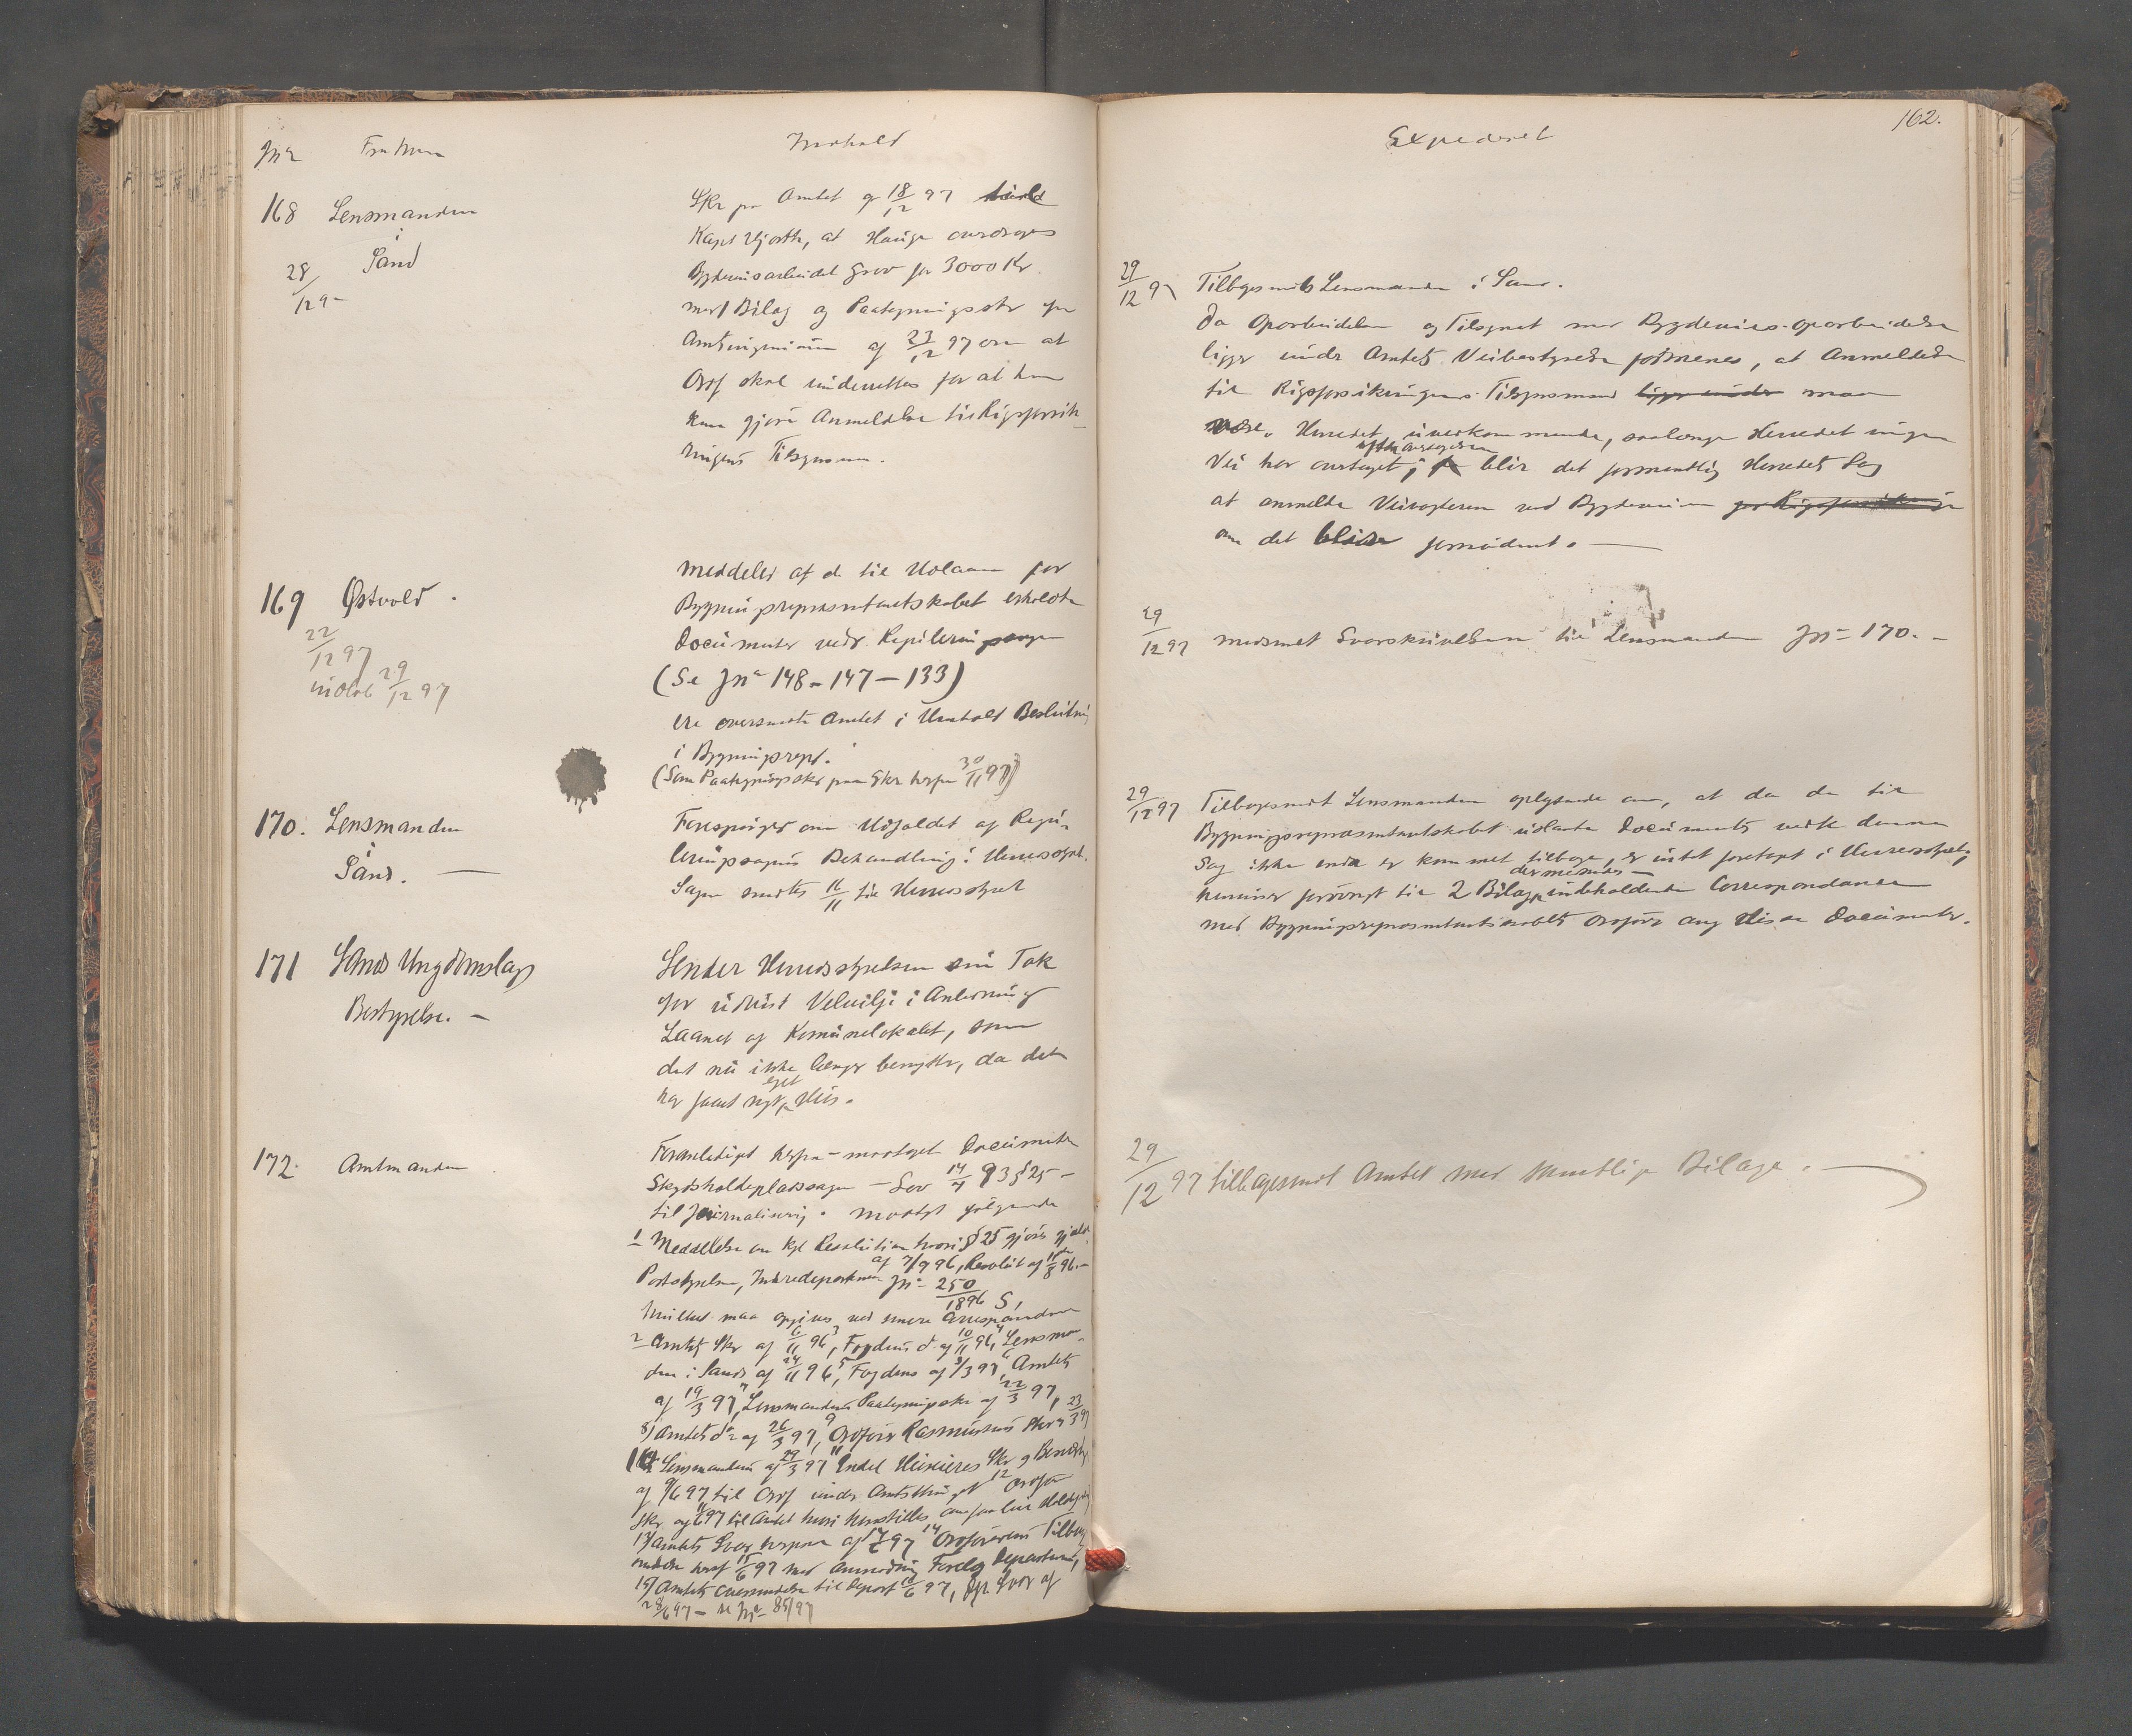 162.
Jnr Fra hvem Indhold Expederet
168 Lensmanden
i
Sand
28/12 9-
Skr fra Amtet af 18/12 97
Kapt Hjorth, at Hauge overdrages
Bygdeveisarbeidet Grov for 3000 Kr
med Bilag og Paategningsskr fra
Amtsingeniøren af 23/12 97 om at
Ordf skal underrettes for at han
kan gjøre Anmeldelse til Rigsforsik-
ringens Tilsynsm.
29/12 97 Tilbagesendt Lensmanden i Sand.
Da Oparbeidelsen og Tilsynet med Bygdeveies oparbeidelse
ligger under Amtets Veibestyrelse formenes, at Anmeldelse
til Rigsforsikringens Tilsynsmand ligger under maa
være Herredet uvedkommende, saalænge Herredet ingen
Vei har overtaget; efter Overtagelsen blir det formentlig Herredets Sag
at anmelde Veivogteren ved Bygdeveien
om det blir fornødent. —
169 Østvold.
22/12 97
indlob 29/12 97
Meddeler at de til Udlaan for
Bygningsrepræsentantskabet erholdte
Documenter vedr. Reguleringssagen
(Se Jnr 148 - 147 - 133)
ere oversendte Amtet i Henhold Beslutning
i Bygningsrepr.
(Som Paategningsskr paa Skr herfra 30/11 97)
29/12 97 medsendt Svarskrivelsen til Lensmanden Jnr 170. -
170. Lensmanden
i
Sand. —
Forespørger om Udfaldet af Regu-
leringssagens Behandling i Herredsstyret.
Sagen sendtes 16/11 til Herredsstyret
29/12 97 Tilbagesendt Lensmanden oplysende om, at da de til
Bygningsrepræsentantskabet udlaante Documenter vedk denne
Sag ikke endnu er kommet tilbage, er intet foretaget i Herredsstyret,
henviser forøvrigt til 2 Bilag dermedsendes — indeholdende Correspondance
med Bygningsrepræsentantskabets Ordfører ang disse Documenter.
171 Sands Ungdomslags
Bestyrelse. -
Sender Herredsstyrelsen sin Tak
for udvist Velvilje i Anledning
Laanet af Komunelokalet, som
det nu ikke længer benytter, da det
har faaet sig eget Hus.
172. Amtmanden
Foranlediget herfra - modtaget Documenter
Skydsholdspladssagen - Lov 14/7 93 § 25 -
til Journalisering. Modtat følgende
1 Meddelelse om Kgl Resolution hvori § 25 gjøres gjæld.
Poststyrelsen, Indredepartmen af 7/9 96, Resolut af 18/8 96.-
Jnr 250/1896 S,
hvilket maa opgives ved senere Correspondance
2 Amtets Skr af 6/11 96, 3 Fogdens d- af 10/11 96, 4 Lensman-
den i Sands af 24/11 96, 5 Fogdens af 3/3 97, 6 Amtets
af 19/3 97, 7 Lensmandens Paategningsskr af 22/3 97,
8) Amtets dr af 26/3 97, 9 Ordfører Rasmussens Skr 23/3 97
10 Lensmandens af 29/3 97 11 Endel Skr
af 9/6 97 til Ordf under Amtsthinget 12 Ordfør
Skr af 11/6 97 til Amtet hvori henstilles
13) Amtets Svar herpaa af 14/6 97 14 Ordførerens Tilbage
15/6 97 med Anmodning Departement,
15) Amtets Oversendelse til Depart 18/6 97, Dpt Svar af
28/6 97 - se Jnr 85/97
29/12 97 tilbagesendt Amtet med samtlige Bilage. —